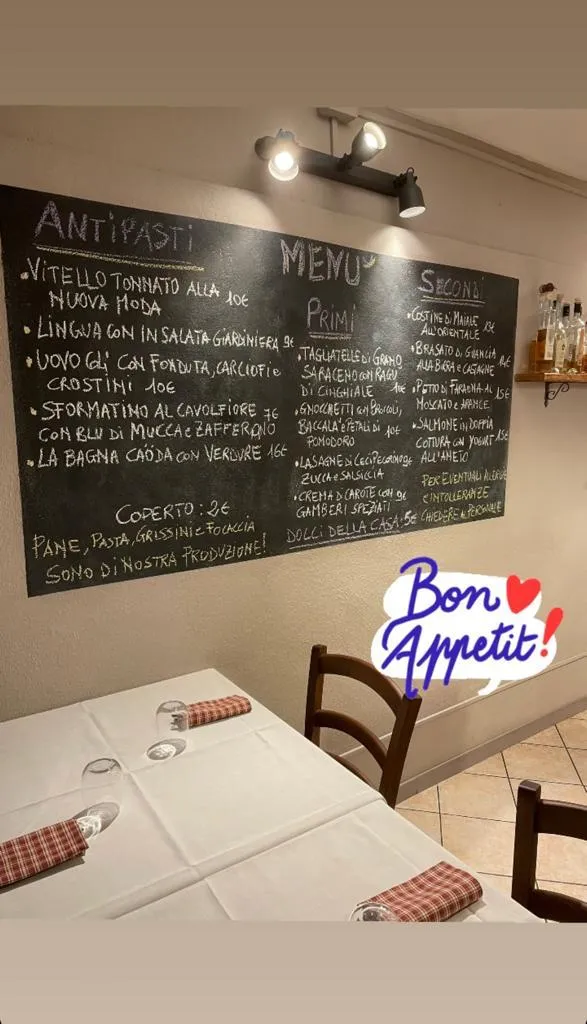 ANTIPASTI
• VITELLO TONNATO ALLA
NUOVA MODA 10€
• LINGUA CON INSALATA GIARDINIERA 9€
• UOVO CON FONDUTA, CARCIOFI e
CROSTINI 10€
• SFORMATINO AL CAVOLFIORE 7€
CON BLU DI MUCCA e ZAFFERANO
• LA BAGNA CAÖDA CON VERDURE 16€
COPERTO: 2€
PANE, PASTA, GRISSINI e FOCACCIA
SONO DI NOSTRA PRODUZIONE!
MENU
PRIMI
• TAGLIATELLE DI GRANO
SARACENO CON RAGU
DI CINGHIALE
• GNOCCHETTI CON BROCCOLI,
BACCALA' e PETALI DI 10€
POMODORO
• LASAGNE DI CECI PECORINO 9€
ZUCCA e SALSICCIA
• CREMA DI CAROTE CON 9€
GAMBERI SPEZIATI
DOLCI DELLA CASA: 5€
SECONDI
• COSTINE DI MAIALE
ALL'ORIENTALE
• BRASATO DI GUANCIA
ALLA BIRRA e CASTAGNE
• PETTO DI FARAONA AL 15€
MOSCATO e ARANCE
• SALMONE IN DOPPIA
COTTURA CON YOGURT 15€
ALL'ANETO
PER EVENTUALI ALLERGIE
e INTOLLERANZE
CHIEDERE AL PERSONALE
Bon
Appetit!